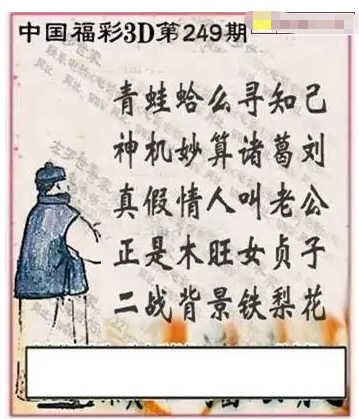 中国福彩3D第249期
青蛙蛤么寻知己
神机妙算诸葛刘
真假情人叫老公
正是木旺女贞子
二战背景铁梨花